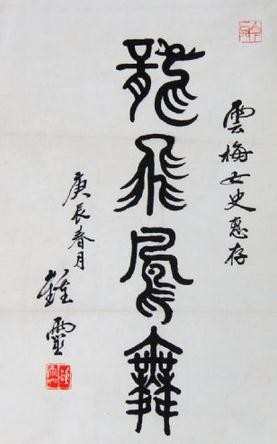 雲梅女史惠存
龍飛鳳舞
庚辰春月